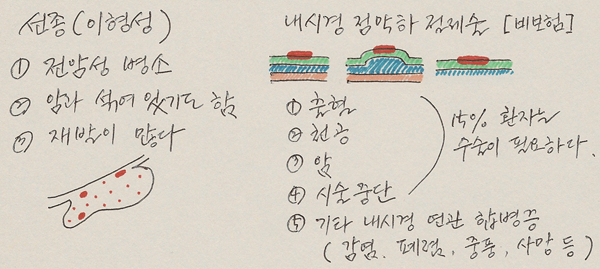 선종 (이형성)
① 전암성 병소
② 암과 섞여 있기도 함
③ 재발이 많다
내시경 점막하 절제술 [비보험]
① 출혈
② 천공
③ 암
④ 시술 중단
15% 환자는
수술이 필요하다.
⑤ 기타 내시경 연관 합병증
(감염, 폐렴, 중풍, 사망 등)